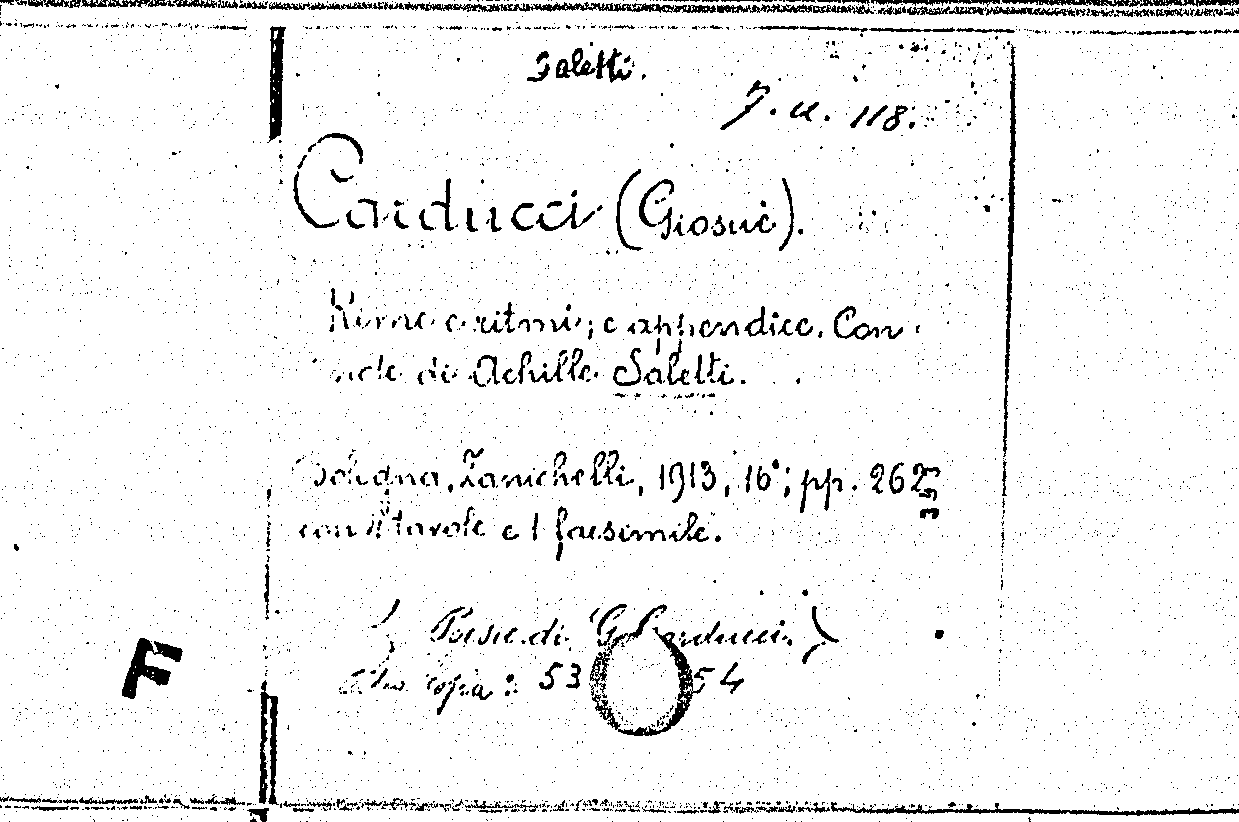 Saletti.
7. u. 118.
Carducci (Giosuè).
Rime e ritmi; e appendice. Con
note di Achille Saletti.
Bologna, Zanichelli, 1913, 16°; pp. 262
con 4 tavole e 1 facsimile.
Poesie di G. Carducci)
altra copia: 53 54
F